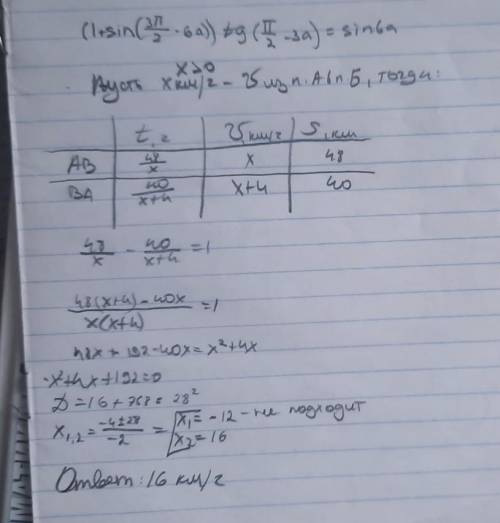 (1+sin(3π/2 - 6a)) tg(π/2 - 3a) = sin6a
x>0
Пусть x км/г - V из п. А в п Б, тогда:
t, г V, км/г S, км
AB 48/x x 48
BA 40/(x+4) x+4 40
48/x - 40/(x+4) = 1
(48(x+4)-40x)/(x(x+4)) = 1
48x + 192-40x = x²+4x
-x²+4x+192=0
D = 16 + 768 = 28²
x₁,₂ = (-4±28)/(-2) = [x₁ = -12 - не подходит
x₂ = 16
Ответ: 16 км/г